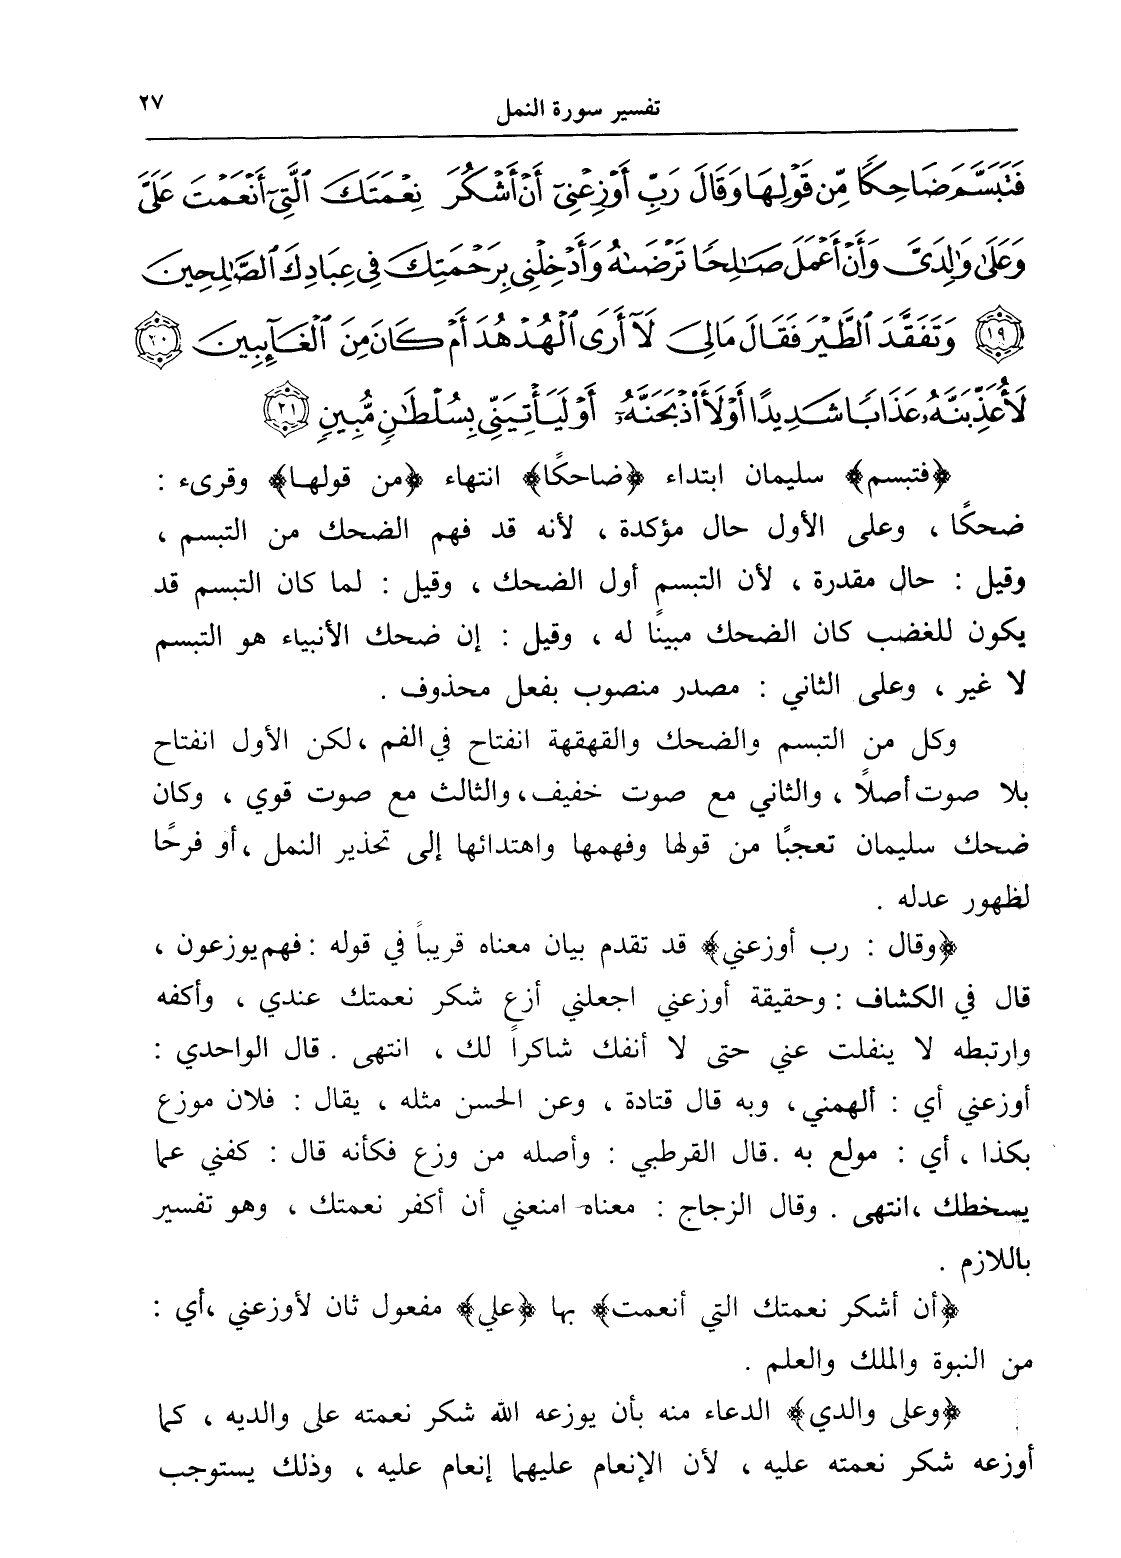 تفسير سورة النمل
٢٧
فَتَبَسَّمَ ضَاحِكًا مِّن قَوْلِهَا وَقَالَ رَبِّ أَوْزِعْنِىٓ أَنْ أَشْكُرَ نِعْمَتَكَ ٱلَّتِىٓ أَنْعَمْتَ عَلَىَّ
وَعَلَىٰ وَٰلِدَىَّ وَأَنْ أَعْمَلَ صَٰلِحًا تَرْضَىٰهُ وَأَدْخِلْنِى بِرَحْمَتِكَ فِى عِبَادِكَ ٱلصَّٰلِحِينَ
﴿١٩﴾ وَتَفَقَّدَ ٱلطَّيْرَ فَقَالَ مَالِىَ لَآ أَرَى ٱلْهُدْهُدَ أَمْ كَانَ مِنَ ٱلْغَآئِبِينَ ﴿٢٠﴾
لَأُعَذِّبَنَّهُۥ عَذَابًا شَدِيدًا أَوْ لَأَا۟ذْبَحَنَّهُۥٓ أَوْ لَيَأْتِيَنِّى بِسُلْطَٰنٍ مُّبِينٍ ﴿٢١﴾
﴿فتبسم﴾ سليمان ابتداء ﴿ضاحكًا﴾ انتهاء ﴿من قولها﴾ وقرىء :
ضحكًا ، وعلى الأول حال مؤكدة ، لأنه قد فهم الضحك من التبسم ،
وقيل : حال مقدرة ، لأن التبسم أول الضحك ، وقيل : لما كان التبسم قد
يكون للغضب كان الضحك مبينًا له ، وقيل : إن ضحك الأنبياء هو التبسم
لا غير ، وعلى الثاني : مصدر منصوب بفعل محذوف .
وكل من التبسم والضحك والقهقهة انفتاح في الفم ، لكن الأول انفتاح
بلا صوت أصلاً ، والثاني مع صوت خفيف، والثالث مع صوت قوي ، وكان
ضحك سليمان تعجبًا من قولها وفهمها واهتدائها إلى تحذير النمل ، أو فرحًا
لظهور عدله .
﴿وقال : رب أوزعني﴾ قد تقدم بيان معناه قريباً في قوله : فهم يوزعون ،
قال في الكشاف : وحقيقة أوزعني اجعلني أزع شكر نعمتك عندي ، وأكفه
وارتبطه لا ينفلت عني حتى لا أنفك شاكراً لك ، انتهى . قال الواحدي :
أوزعني أي : ألهمني، وبه قال قتادة ، وعن الحسن مثله ، يقال : فلان موزع
بكذا ، أي : مولع به . قال القرطبي : وأصله من وزع فكأنه قال : كفني عما
يسخطك ،انتهى . وقال الزجاج : معناه امنعني أن أكفر نعمتك ، وهو تفسير
باللازم .
﴿أن أشكر نعمتك التي أنعمت﴾ بها ﴿علي﴾ مفعول ثان لأوزعني ،أي :
من النبوة والملك والعلم .
﴿وعلى والدي﴾ الدعاء منه بأن يوزعه الله شكر نعمته على والديه ، كما
أوزعه شكر نعمته عليه ، لأن الإنعام عليهما إنعام عليه ، وذلك يستوجب